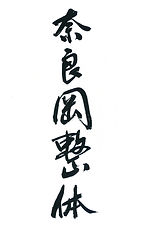 奈良岡整体